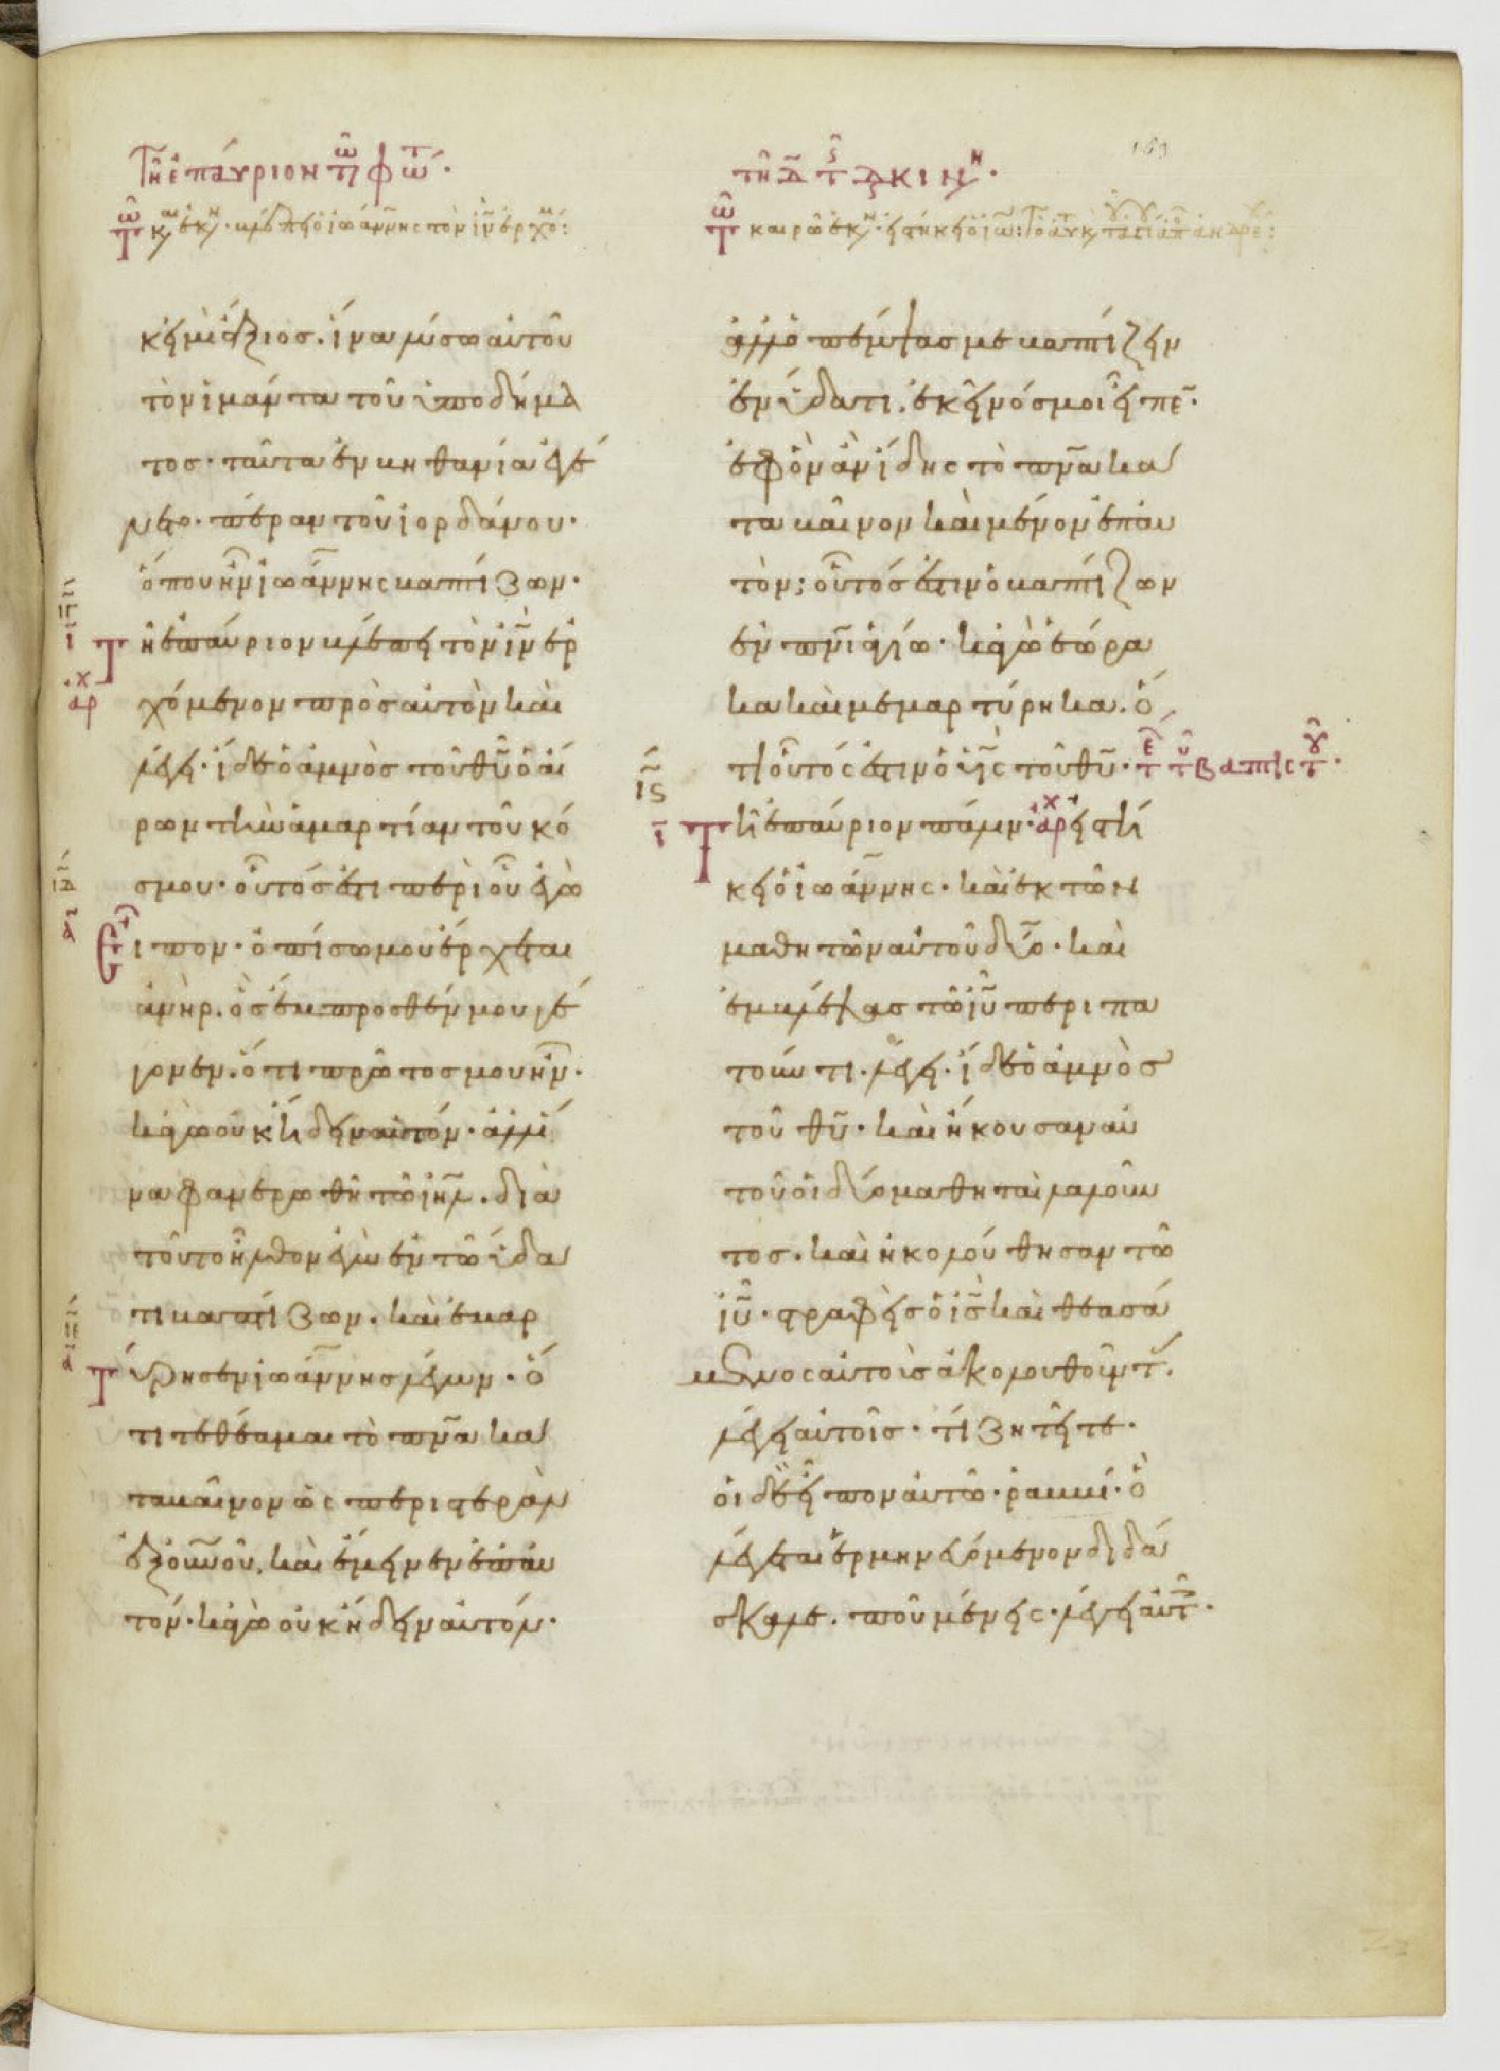 Τῆ ἐπάυριον τῶν φώτ·
τῶ κ αιρῶ ἐκ · βλέπει ὁ ἰωάννης τὸν ἰν ἐρχο:
κ εἰμὶ ἄξιος. ἵνα λύσω αὐτοῦ
τὸν ἱμάντα τοῦ ὑποδήμα
τος· ταῦτα ἐν βηθανία ἐγέ
νετο. πέραν τοῦ ἰορδάνου·
ὅπου ἦν ἰωάννης βαπτίζων·
ιγ
ι
Τῆ ἐπαύριον βλέπει τὸν ἰν ἐρ
αρχ
χόμενον πρὸς αὐτὸν καὶ
λέγει· ἴδε ὁ ἀμνὸς τοῦ θυ ὁ αἴ
ρων τὴν ἁμαρτίαν τοῦ κό
ιδ
α
σμου· οὗτός ἐστι περὶ οὗ ἐγὼ
εἶπον· ὀπίσω μου ἔρχεται
ἀνὴρ. ὃς ἔμπροσθέν μου γέ
γονεν. ὅτι πρῶτος μου ἦν·
κἀγὼ οὐκ ἤδειν αὐτόν· ἀλλ' ἵ
να φανερωθῆ τῶ ιηλ. διὰ
τοῦτο ἦλθον ἐγὼ ἐν τῶ ὕδα
τι βαπτίζων. καὶ ἐμαρ
ιε
α
Τύρησεν ἰωάννης λέγων· ὅ
τι τεθέαμαι τὸ πνα κα
ταβαῖνον ὡς περιστερὰν
ἐξ οὐνοῦ. καὶ ἔμεινεν ἐπ' αυ
τόν· κἀγὼ οὐκ ἤδειν αὐτόν·
τῆ δ τ διακινη·
τῶ καιρῶ ἐκ· εἱστήκει ὁ ἰω:
ἀλλ' ὁ πέμψας με βαπτίζειν
ἐν ὕδατι. ἐκεῖνός μοι εἶπε·
ἐφ' ὃν ἂν ἴδης τὸ πνα κα
ταβαῖνον καὶ μένον ἐπ' αυ
τὸν; οὗτός ἐστιν ὁ βαπτίζων
ἐν πνι ἁγίω· κἀγὼ ἑώρα
κα καὶ μεμαρτύρηκα. ὅ
τι οὗτός ἐστιν ὁ υἱς τοῦ θυ· τε τ βαπτιστ·
ις
ι
Τῆ ἐπαύριον πάλιν· αρχ εἱστή
κει ὁ ἰωάννης· καὶ ἐκ τῶν
μαθητῶν αὐτοῦ δύο· καὶ
ἐμβλέψας τῶ ιυ περιπα
τοῦντι. λέγει· ἴδε ὁ ἀμνὸς
τοῦ θυ· καὶ ἤκουσαν αὐ
τοῦ οἱ δύο μαθηταὶ λαλοῦν
τος. καὶ ἠκολούθησαν τῶ
ιυ· στραφεὶς ὁ ις καὶ θεασά
μενος αὐτοὺς ἀκολουθοῦντ.
λέγει αὐτοῖς· τί ζητεῖτε·
οἱ δὲ εἶπον αὐτῶ· ῥαββί· ὃ
λέγεται ἑρμηνευόμενον διδά
σκαλε. ποῦ μένεις· λέγει αὐτ·